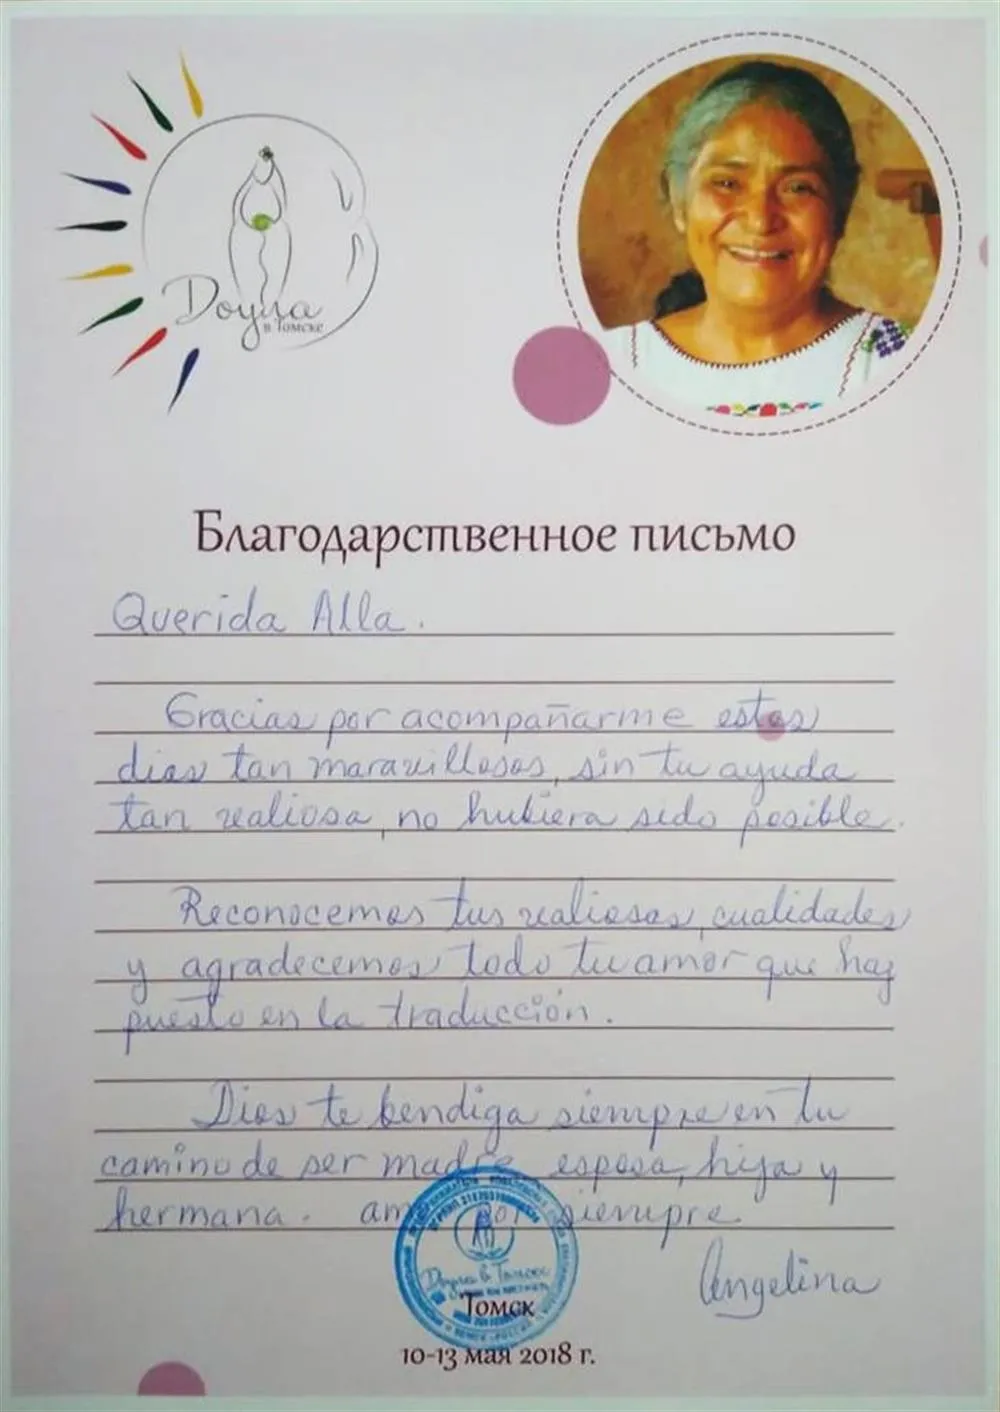 Доула
в Томске
Благодарственное письмо
Querida Alla.
Gracias por acompañarme estos
dias tan maravillosos, sin tu ayuda
tan valiosa, no hubiera sido posible.
Reconocemos tus valiosas cualidades
y agradecemos todo tu amor que haz
puesto en la traducción.
Dios te bendiga siempre en tu
camino de ser madre, esposa, hija y
hermana. por siempre
Angelina
Доула в Томске
Томск
10-13 мая 2018 г.